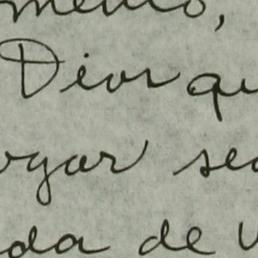 mento,
Dios qu
ogar se
da de v